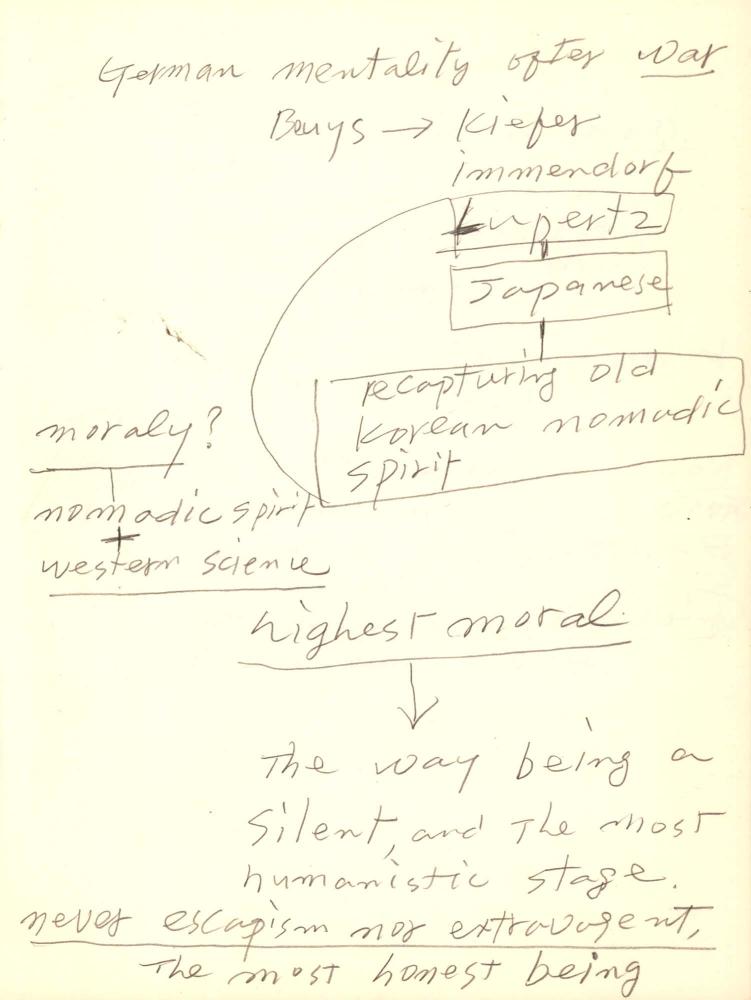 German mentality after war
Beuys → Kiefer
immendorf
Lupertz
Japanese
recapturing old
Korean nomadic
spirit
moraly?
nomadic spirit
+
western science
highest moral
The way being a
silent, and The most
humanistic stage.
never escapism nor extravagent,
The most honest being